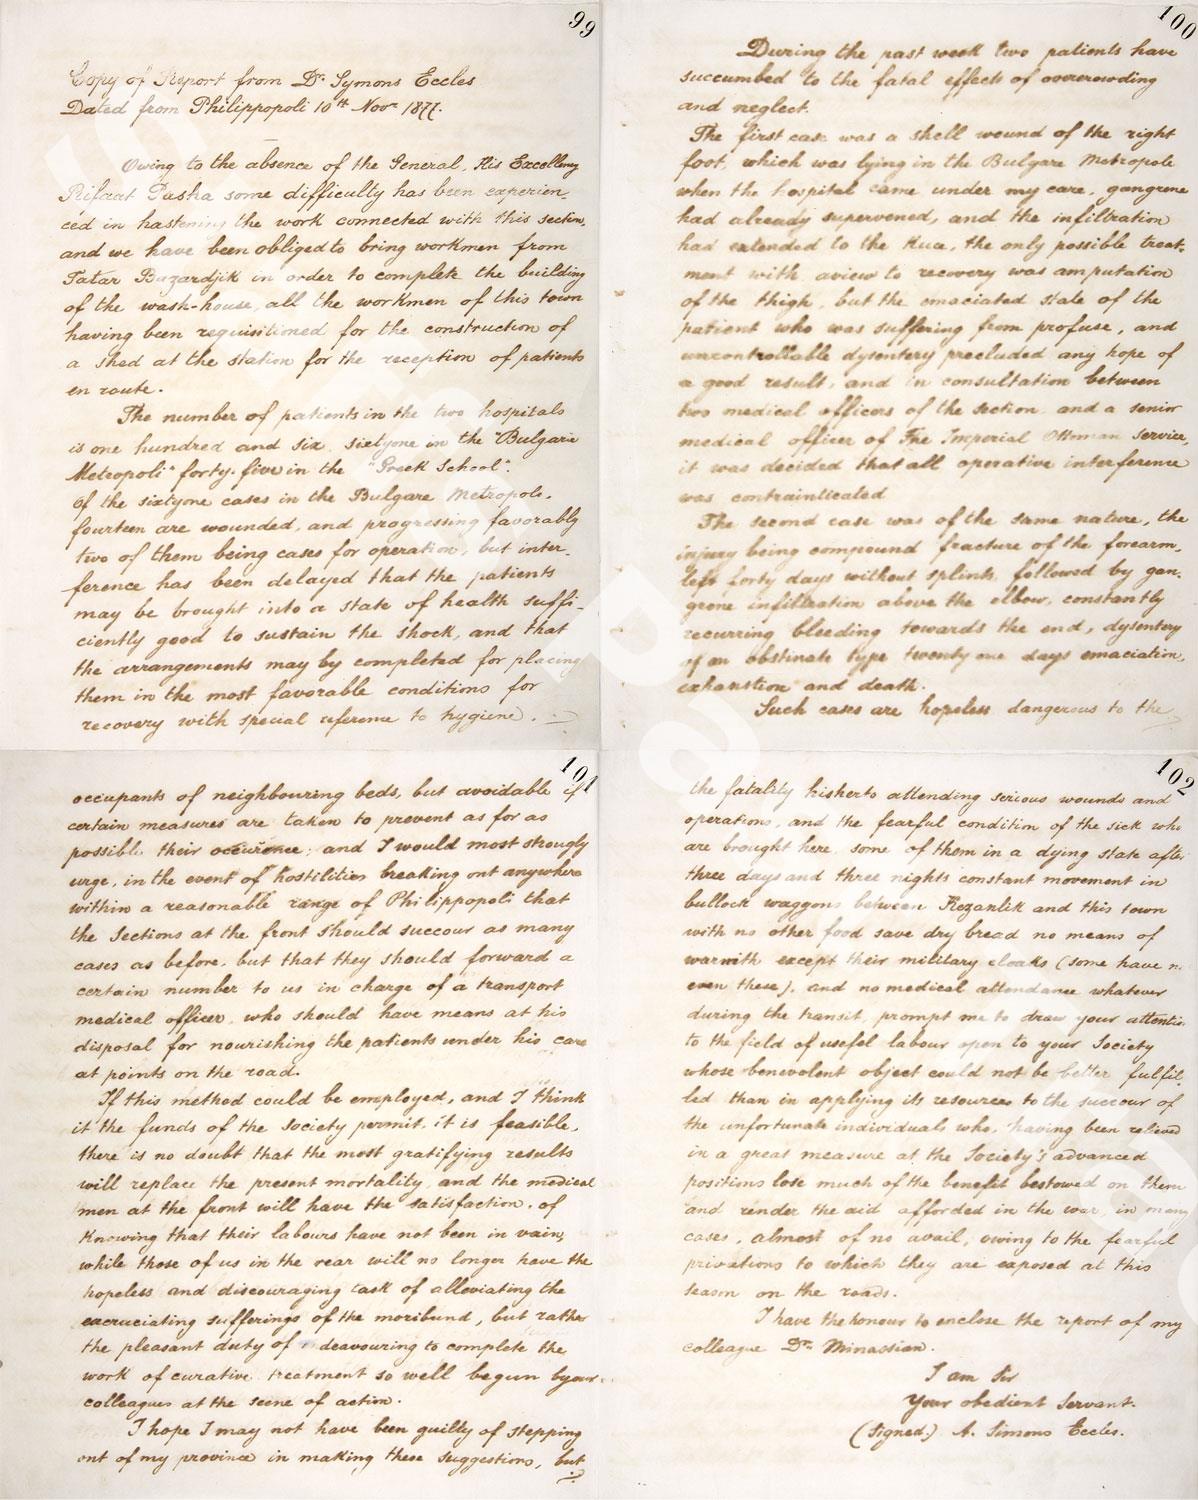 99
Copy of Report from Dr. Symons Eccles
Dated from Philippopoli 10th Novr 1877.
Owing to the absence of the General, His Excellency
Rifaat Pasha some difficulty has been experien-
ced in hastening the work connected with this section,
and we have been obliged to bring workmen from
Tatar Bazardjik in order to complete the building
of the wash-house, all the workmen of this town
having been requisitioned for the construction of
a shed at the station for the reception of patients
en route.
The number of patients in the two hospitals
is one hundred and six, sixtyone in the "Bulgare
Metropoli" forty-five in the "Greek School".
Of the sixtyone cases in the Bulgare Metropole.
fourteen are wounded, and progressing favorably
two of them being cases for operation, but inter-
ference has been delayed that the patients
may be brought into a state of health suffi-
ciently good to sustain the shock, and that
the arrangements may by completed for placing
them in the most favorable conditions for
recovery with special reference to hygiene.
100
During the past week two patients have
succumbed to the fatal effects of overcrowding
and neglect.
The first case was a shell wound of the right
foot, which was lying in the Bulgare Metropole
when the hospital came under my care, gangrene
had already supervened, and the infiltration
had extended to the Knee, the only possible treat-
ment with a view to recovery was amputation
of the thigh, but the emaciated state of the
patient who was suffering from profuse, and
uncontrollable dysentery precluded any hope of
a good result, and in consultation between
two medical officers of the section and a senior
medical officer of The Imperial Ottoman Service,
it was decided that all operative interference
was contrainticated
The second case was of the same nature, the
injury being compound fracture of the forearm,
left forty days without splints, followed by gan-
grene infiltration above the elbow, constantly
recurring bleeding towards the end, dysentery
of an obstinate type twenty one days emaciation,
exhaustion and death.
Such cases are hopeless dangerous to the
101
occupants of neighbouring beds, but avoidable if
certain measures are taken to prevent as for as
possible their occurence; and I would most strongly
urge, in the event of hostilities breaking out anywhere
within a reasonable range of Philippopoli that
the Sections at the front should succour as many
cases as before, but that they should forward a
certain number to us in charge of a transport
medical officer, who should have means at his
disposal for nourishing the patients under his care
at points on the road.
If this method could be employed, and I think
it the funds of the Society permit, it is feasible,
there is no doubt that the most gratifying results
will replace the present mortality, and the medical
men at the front will have the satisfaction, of
Knowing that their labours have not been in vain,
while those of us in the rear will no longer have the
hopeless and discouraging task of alleviating the
excruciating sufferings of the moribund, but rather
the pleasant duty of deavouring to complete the
work of curative treatment so well begun by our
colleagues at the scene of action.
I hope I may not have been guilty of stepping
out of my province in making these suggestions, but
102
the fatality hitherto attending serious wounds and
operations, and the fearful condition of the sick who
are brought here, some of them in a dying state after
three days and three nights constant movement in
bullock waggons between Kezanlik and this town
with no other food save dry bread no means of
warmth except their military cloaks (some have n
even these), and no medical attendance whatever
during the transit, prompt me to draw your attentio
to the field of useful labour open to your Society
whose benevolent object could not be better fulfil-
led than in applying its resources to the succour of
the unfortunate individuals who, having been relieved
in a great measure at the Society's advanced
positions lose much of the benefit bestowed on them
and render the aid afforded in the war, in many
cases, almost of no avail, owing to the fearful
privations to which they are exposed at this
season on the roads.
I have the honour to enclose the report of my
colleague Dr. Minassian.
I am Sir
Your obedient Servant.
(Signed.) A. Simons Eccles.